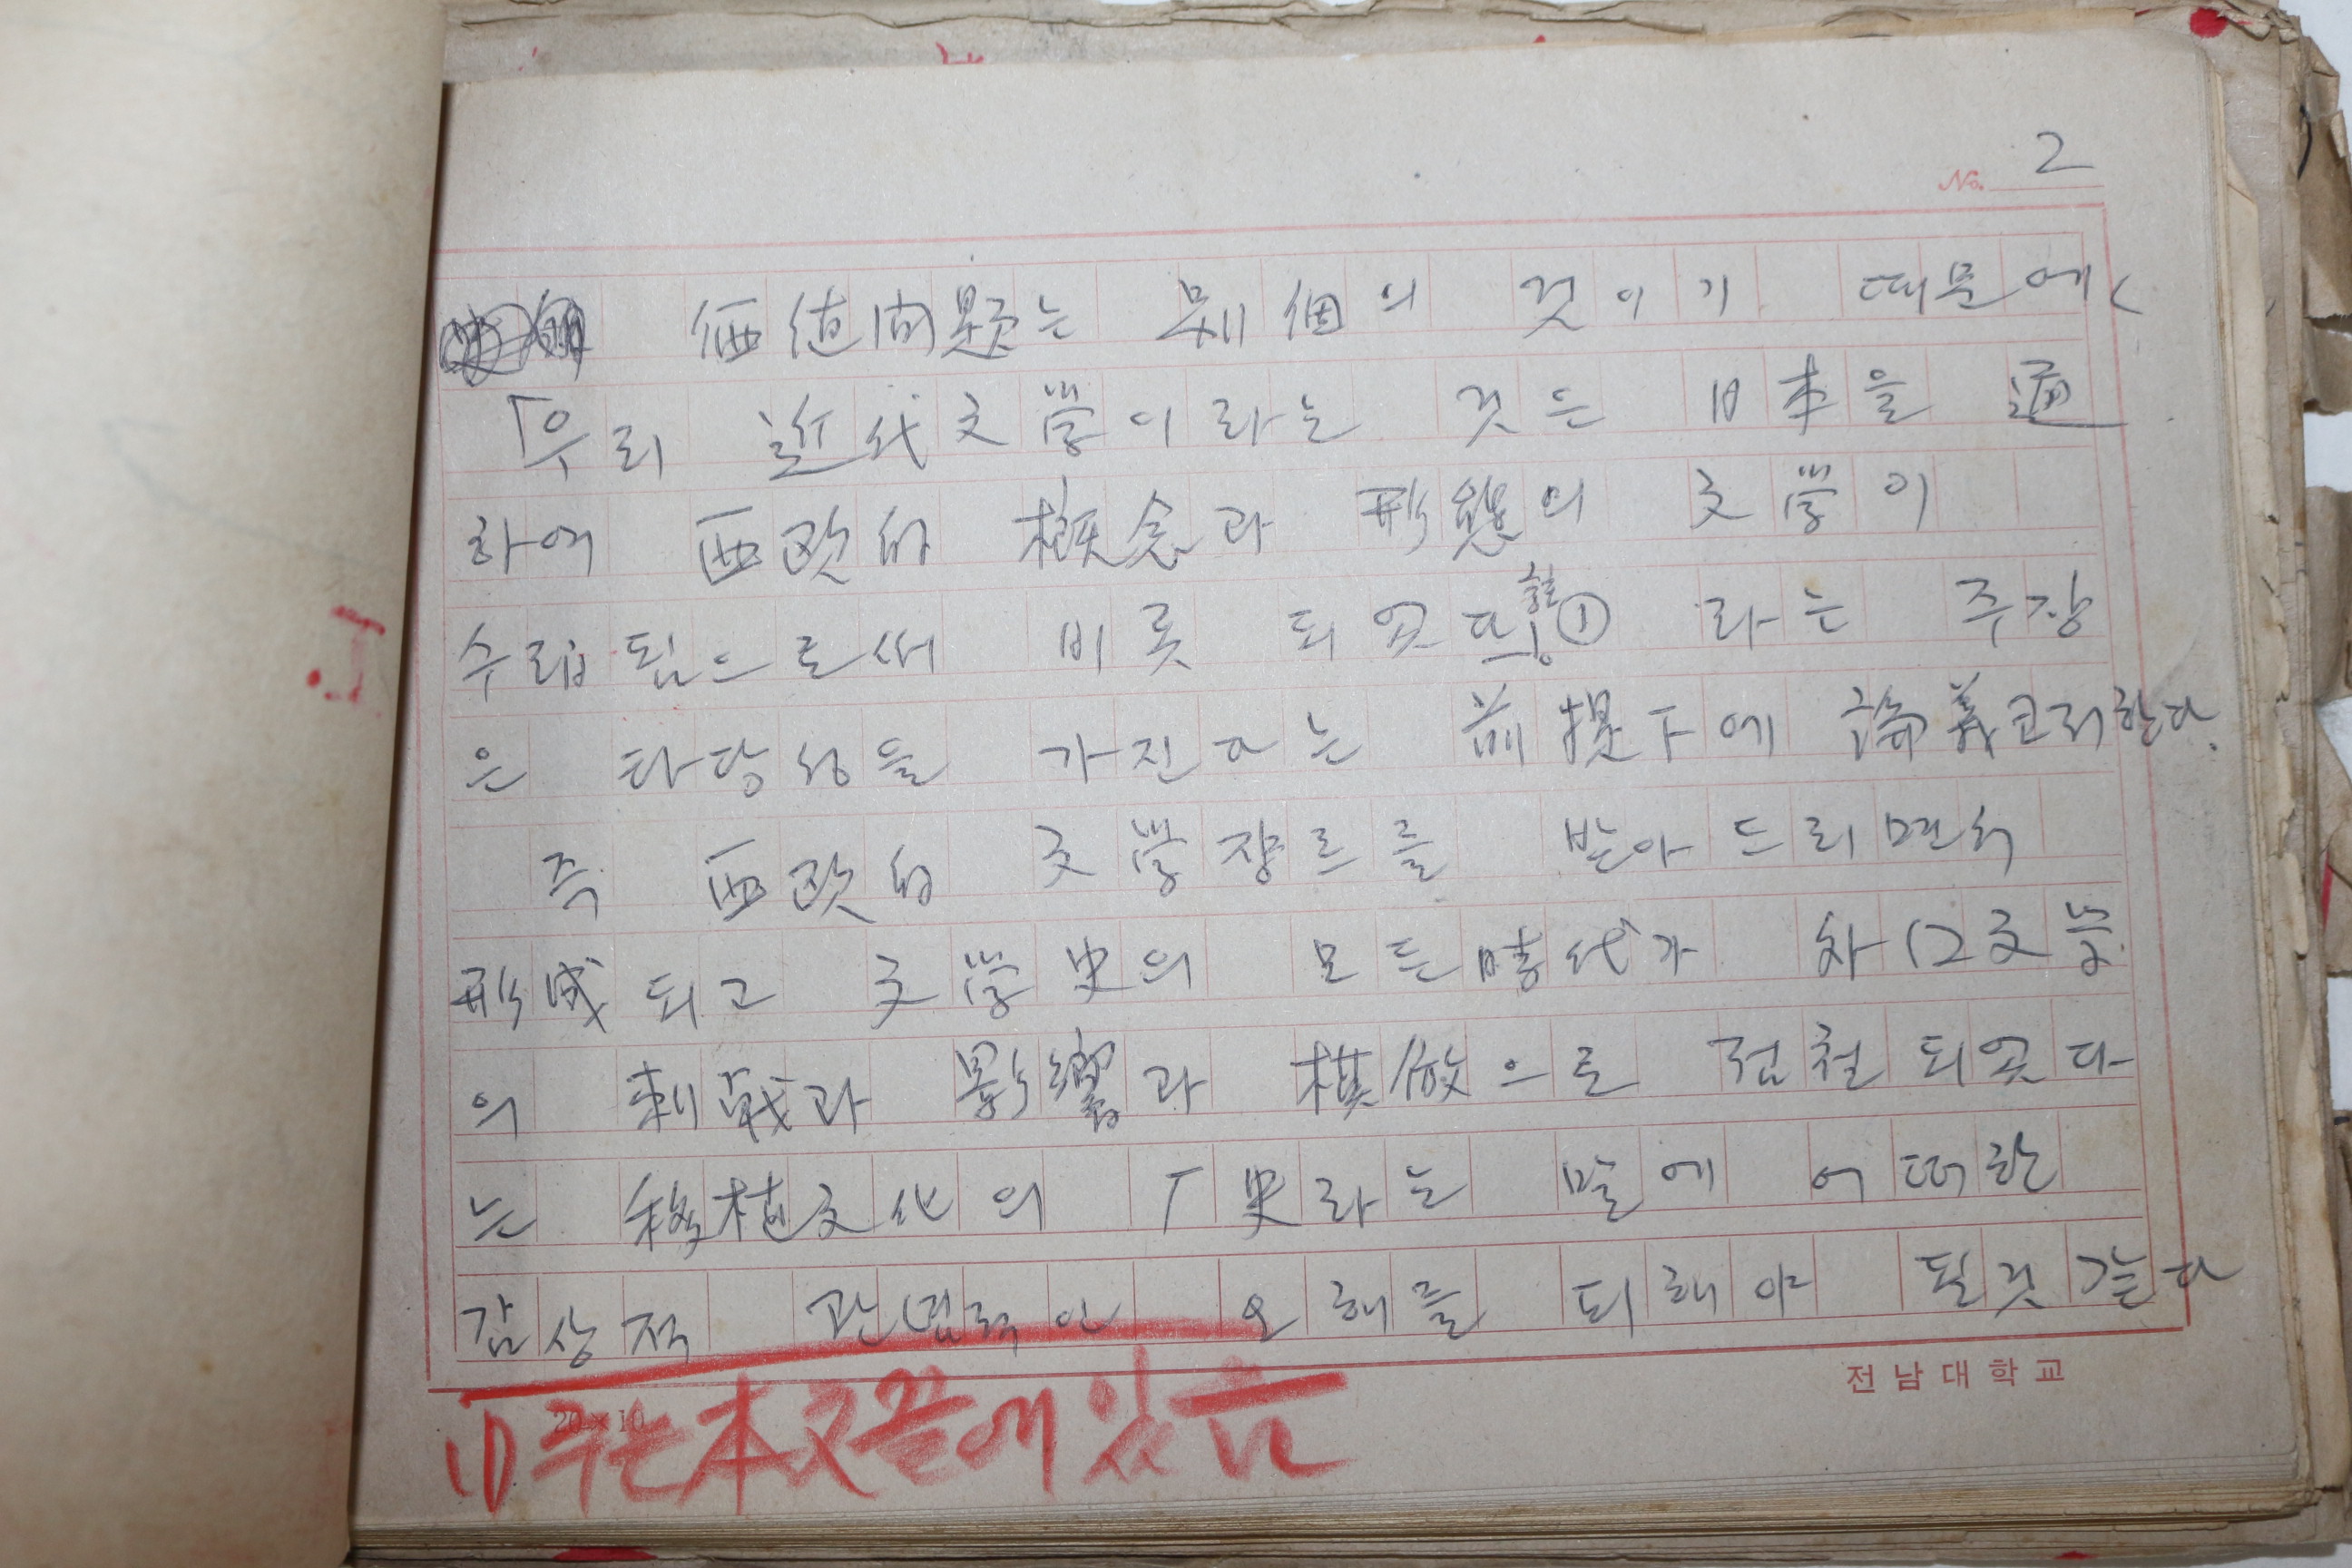 No. 2
価値问題는 別個의 것이기 때문에
「우리 近代文学이라는 것은 日本을 通
하여 西欧的 概念과 形態의 文学이
수립됨으로써 비롯되였다」註① 라는 주장
은 타당성을 가진다는 前提下에 論義코저 한다.
즉 西欧的 文学쟝르를 받아드리면서
形成되고 文学史의 모든時代가 文学
의 刺戟과 影響과 模倣으로 점철되였다
는 移植文化의 厂史라는 말에 어떠한
감상적 관념적인 오해를 퇴해야 될것 같다
전남대학교
20×10
(1) 주는 本文끝에 있음